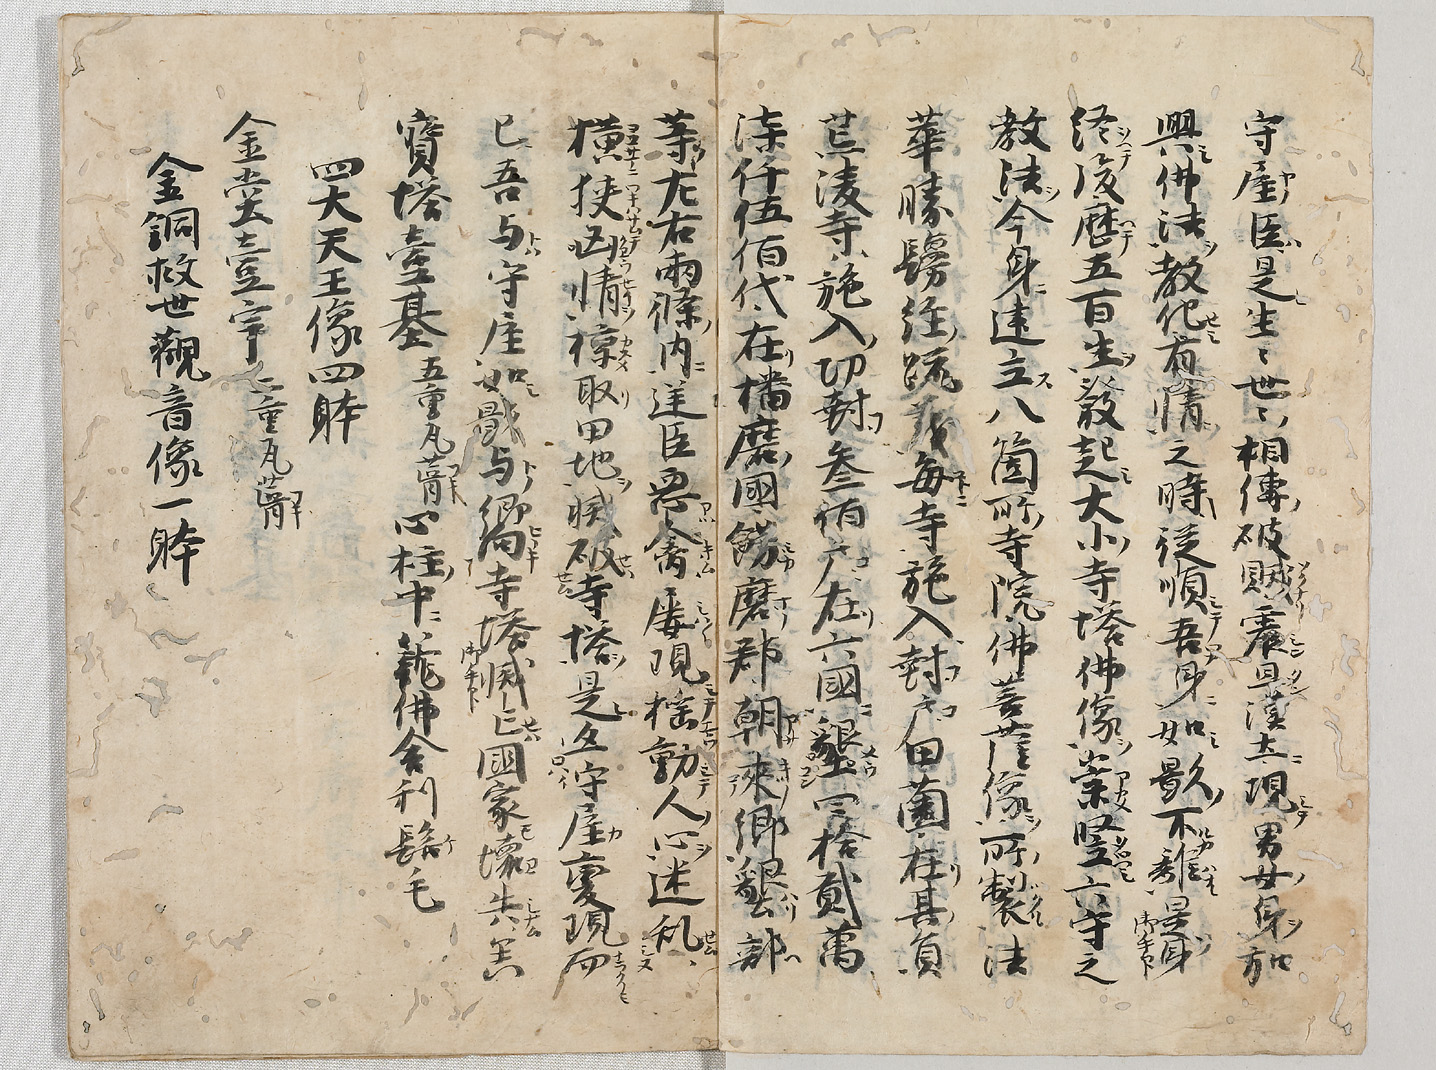 守屋臣是生々世々相傳破賊震旦漢土現男女身弘
興佛法教化有情之時従順吾身如影不離是身
終後歴五百生發起大小寺塔佛像崇竪六寺之
教法今身建立八箇所寺院佛菩薩像所製法
華勝鬘経疏義毎寺施入封戸田薗在其員
荒陵寺施入切封叁佰戸在六國墾田拾貳萬
漆仟伍佰代在播磨國餝磨郡朝来郷墾部
等左右兩條内逆臣悪禽屡現揺動人心迷乱
横挟凶情掠取田地滅破寺塔是亦守屋変現而
已吾与守屋如戯与響寺塔滅亡國家壊失矣
寳塔壹基 五重瓦葺 心柱中籠佛舎利髻毛
四大天王像四躰
金堂壹宇 二重瓦葺
金銅救世觀音像一躰